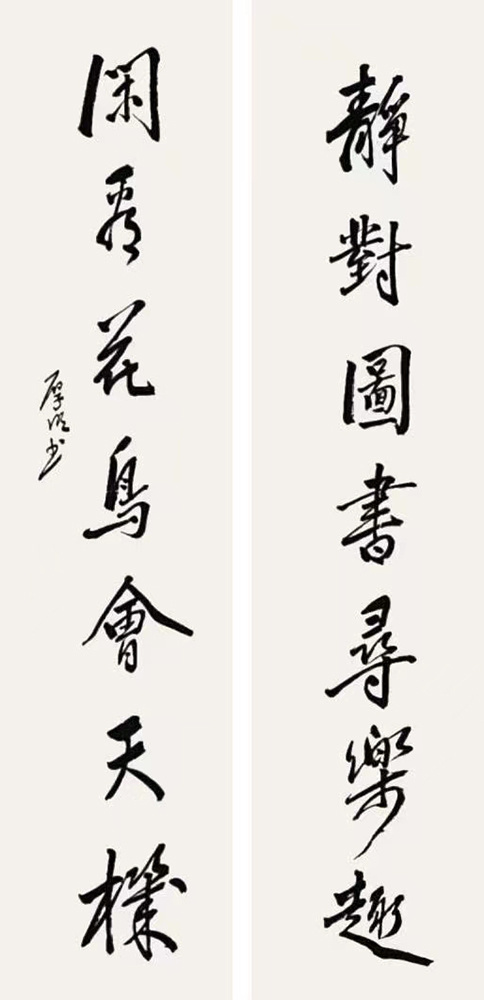 靜對圖書尋樂趣
閑看花鳥會天機
厚 書